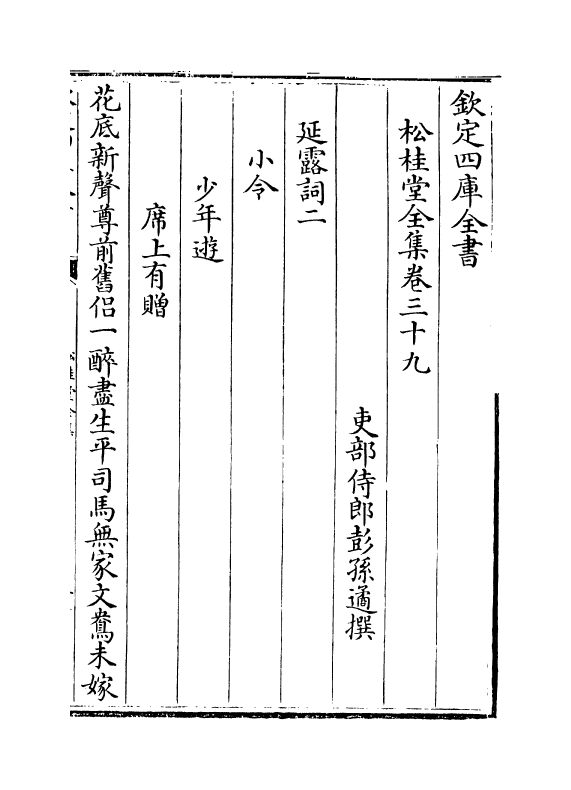 欽定四庫全書
松桂堂全集卷三十九
吏部侍郎彭孫遹撰
延露詞二
小令
少年遊
席上有贈
花底新聲尊前舊侣一醉盡生平司馬無家文鴦未嫁